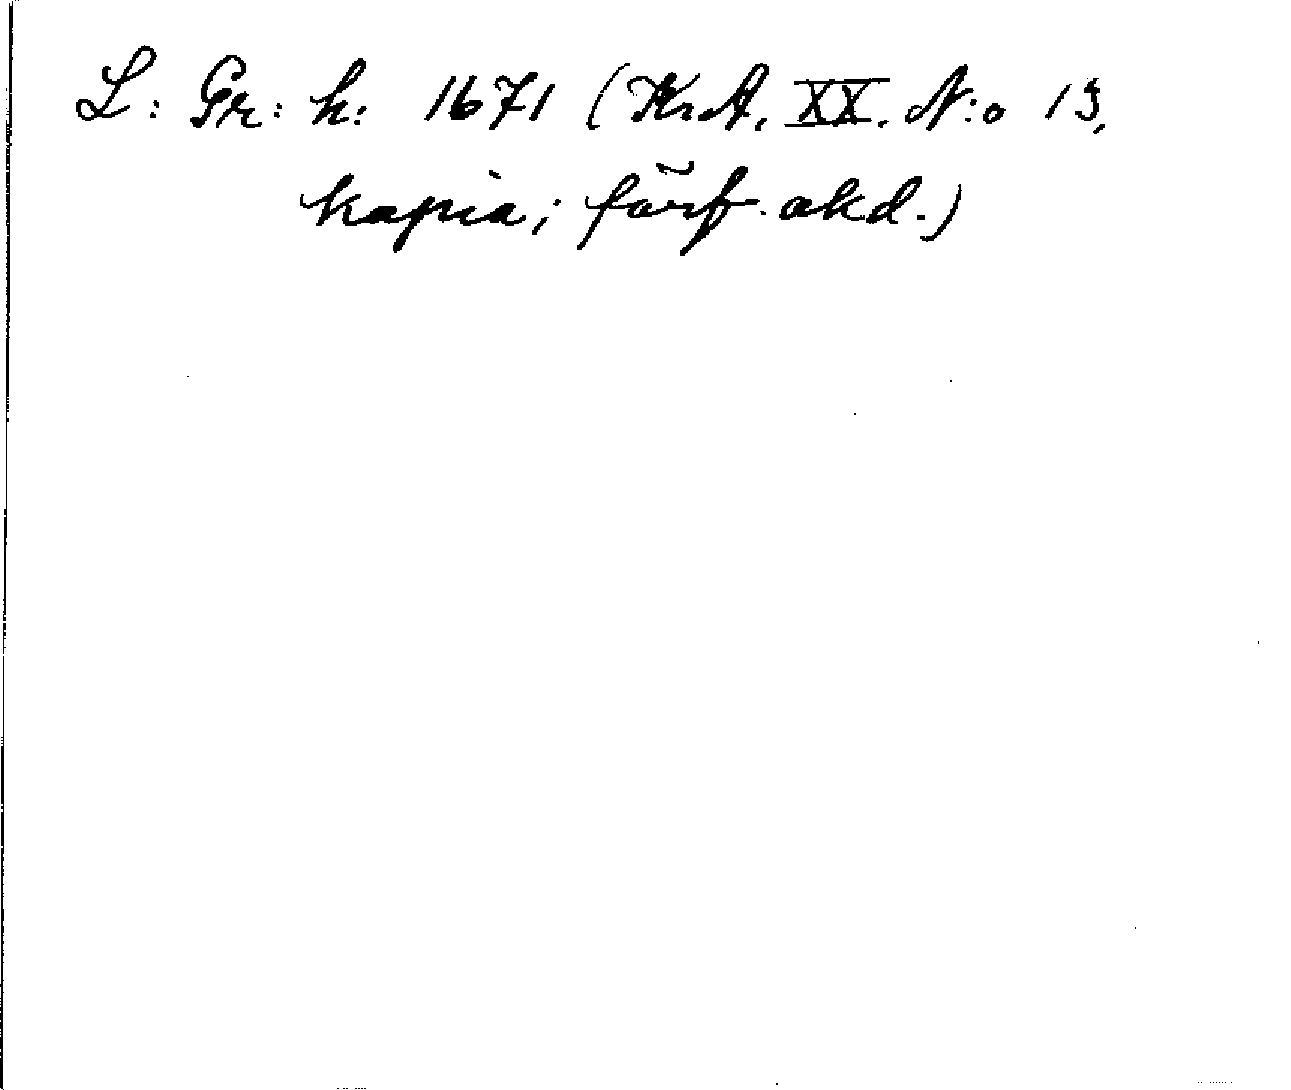 L: Gr: h: 1671 (Kr A. XX. N:o 13,
kopia; förf. okd.)